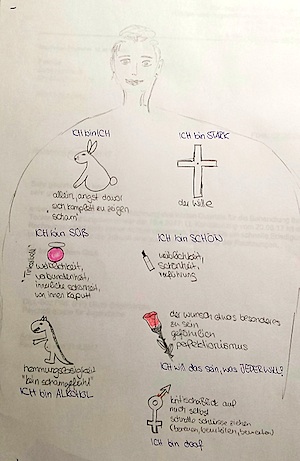 ICH bin ICH
allein, angst davor
sich komplett zu zeigen
"scham"
ICH bin STARK
der Wille
ICH bin SÜß
"Tinkabell"
weiblichkeit,
verbundenheit,
innerliche schönheit,
von innen kaputt
ICH bin SCHÖN
weiblichkeit,
schönheit,
verführung
hemmungslosigkeit
"kein schamgefühl"
ICH bin ALKOHOL
der wunsch etwas besonderes
zu sein
gefährlich
perfektionismus
ICH WILL das sein, was JEDER WILL?
auf
mich selbst
schnelle schlüsse ziehen
ICH bin doof